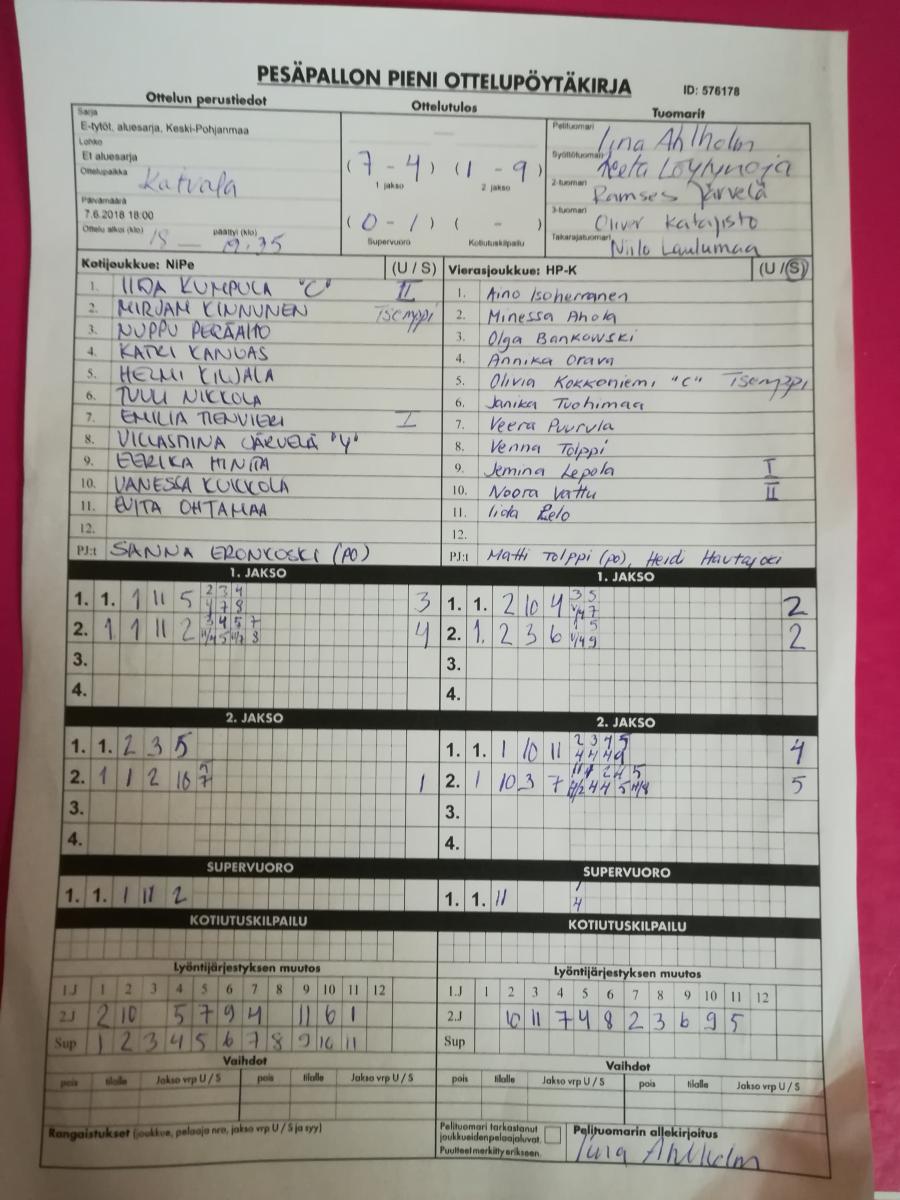 PESÄPALLON PIENI OTTELUPÖYTÄKIRJA
ID: 576178
Ottelun perustiedot
Ottelutulos
Tuomarit
Sarja
E-tytöt, aluesarja, Keski-Pohjanmaa
Lohko
E1 aluesarja
Ottelupaikka
Katvala
Päivämäärä
7.6.2018 18:00
Ottelu alkoi (klo) 18 — päättyi (klo) 19.35
(7 - 4) (1 - 9)
1 jakso 2 jakso
(0 - 1) ( - )
Supervuoro Kotiutuskilpailu
Pelituomari Iina Ahlholm
Syöttötuomari Löytynoja
2-tuomari Ramses Järvelä
3-tuomari Oliver Katajisto
Takarajatuomari Niilo Laulumaa
Kotijoukkue: NiPe (U / S)
1. IIDA KUMPULA "C" II
2. MIRJAM KINNUNEN Tsemppi
3. NUPPU PERÄAHO
4. KATRI KANGAS
5. HELMI KILJALA
6. TUULI NIKKOLA
7. EMILIA TIENVIERI I
8. VILLASTIINA JÄRVELÄ "V"
9. EERIKA HINTA
10. VANESSA KUIKKOLA
11. EVITA OHTAMAA
12.
PJ:t SANNA ERONKOSKI (PO)
Vierasjoukkue: HP-K (U / S)
1. Aino Isoherranen
2. Minessa Ahola
3. Olga Bankowski
4. Annika Orava
5. Olivia Kokkoniemi "C" Tsemppi
6. Janika Tuohimaa
7. Veera Puurula
8. Venna Tolppi
9. Jemina Lepola I
10. Noora Vattu II
11. Iida
12.
PJ:t Matti Tolppi (po), Heidi Hautajoki
1. JAKSO
1. 1. 1 11 5 2 3 4 3
4 7 8
2. 1 1 11 2 3 4 5 7 4
11/4 5 11/7 8
3.
4.
1. JAKSO
1. 1. 2 10 4 3 5 2
2. 1. 2 3 6 1 5 2
3.
4.
2. JAKSO
1. 1. 2 3 5
2. 1 1 2 10 1
3.
4.
2. JAKSO
1. 1. 1 10 11 2 3 4 5
4 4 4 9 4
2. 1 10 3 7 5
3.
4.
SUPERVUORO
1. 1. 1 11 2
SUPERVUORO
1. 1. 11 1
4
KOTIUTUSKILPAILU
KOTIUTUSKILPAILU
Lyöntijärjestyksen muutos
1.J 1 2 3 4 5 6 7 8 9 10 11 12
2.J 2 10 5 7 9 4 11 6 1
Sup 1 2 3 4 5 6 7 8 9 10 11
Lyöntijärjestyksen muutos
1.J 1 2 3 4 5 6 7 8 9 10 11 12
2.J 10 11 7 4 8 2 3 6 9 5
Sup
Vaihdot
pois tilalle Jakso vrp U / S pois tilalle Jakso vrp U / S
Vaihdot
pois tilalle Jakso vrp U / S pois tilalle Jakso vrp U / S
Rangaistukset (joukkue, pelaaja nro, jakso vrp U / S ja syy)
Pelituomari tarkastanut
joukkueidenpelaajaluvat.
Puutteet merkitty erikseen.
Pelituomarin allekirjoitus
Iina Ahlholm